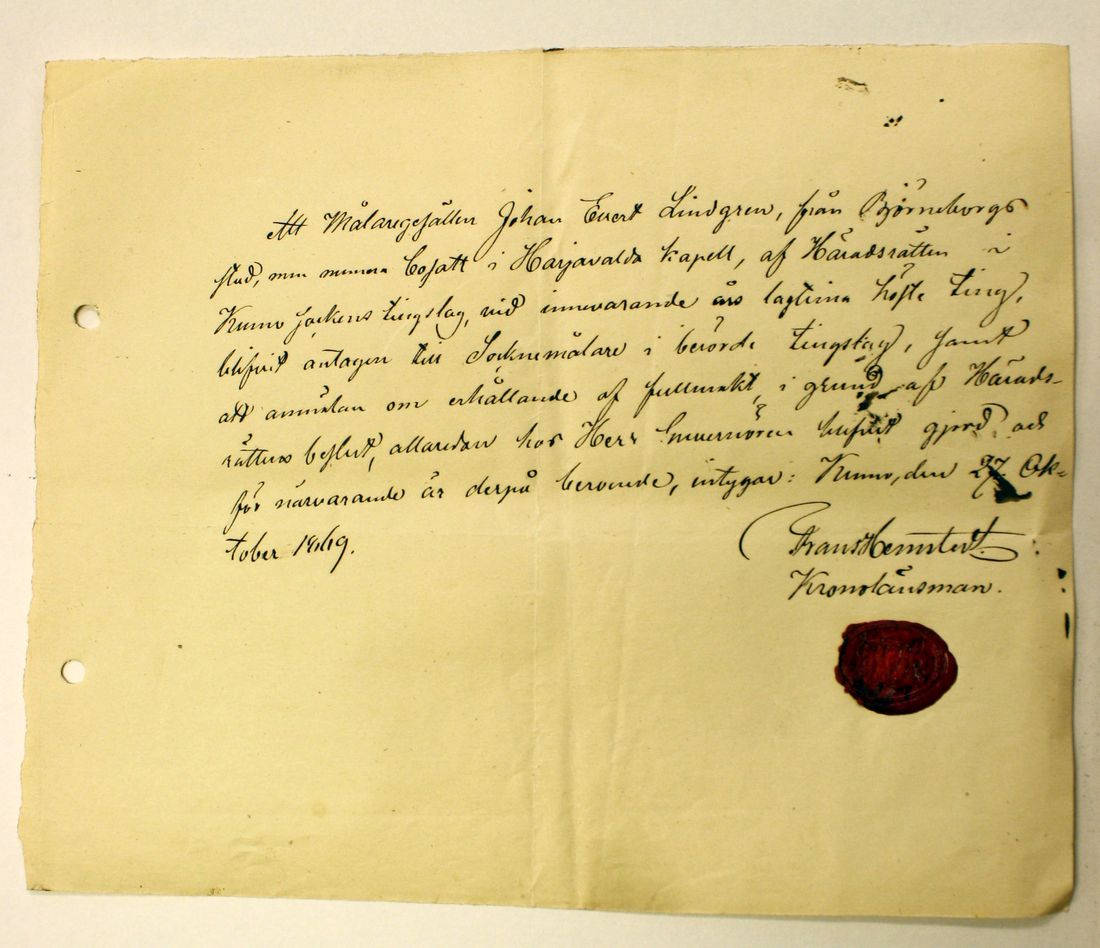 Att Målaregesällen Johan Evert Lindgren, från Björneborgs
stad, men numera bosatt i Harjavalda kapell, af Häradsrätten i
Kumo sockens tingslag, vid innevarande års lagtima höste ting,
blifvit antagen till Socknemålare i berörde tingslag, samt
att anmälan om erhållande af fullmakt, i grund af Härads-
rättens beslut, allaredan hos Herr Guvernören blifvit gjord och
för närvarande är derpå beroende, intygar: Kumo, den 27 Ok-
tober 1869.
Frans
Kronolänsman.